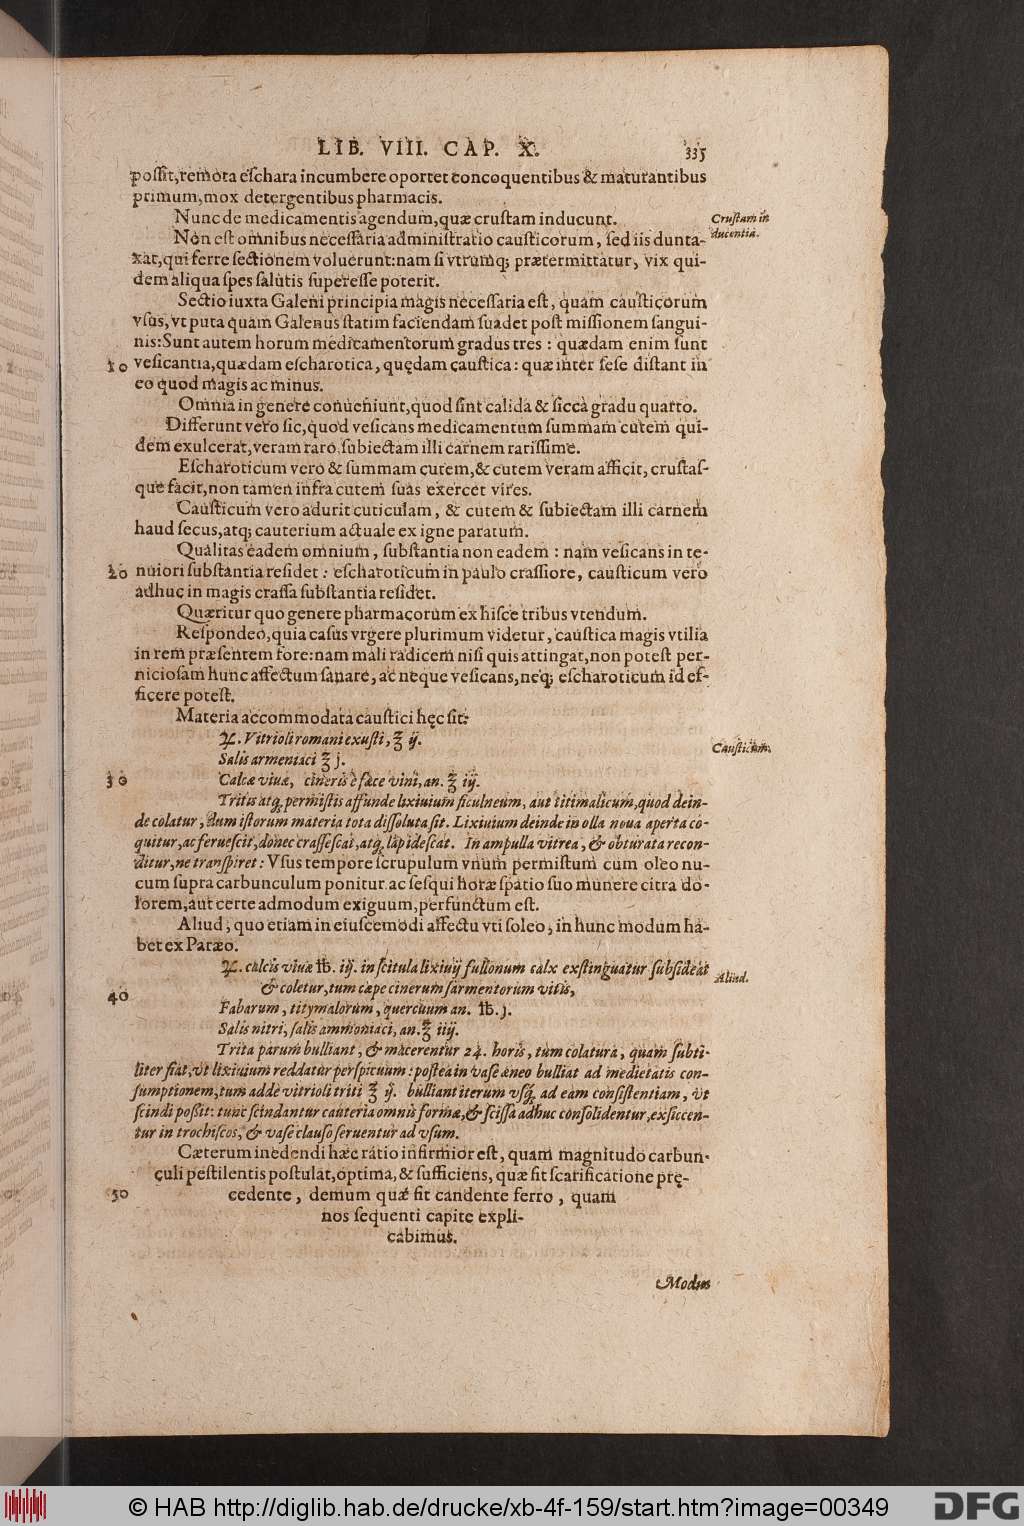 LIB. VIII. CAP. X. 335
possit, remota eschara incumbere oportet concoquentibus & maturantibus
primum, mox detergentibus pharmacis.
Nunc de medicamentis agendum, quæ crustam inducunt.
Crustam in
ducentia.
Non est omnibus necessaria administratio causticorum, sed iis dunta-
xat, qui ferre sectionem voluerunt: nam si vtrumq; prætermittatur, vix qui-
dem aliqua spes salutis superesse poterit.
Sectio iuxta Galeni principia magis necessaria est, quam causticorum
vsus, vt puta quam Galenus statim faciendam suadet post missionem sangui-
nis: Sunt autem horum medicamentorum gradus tres : quædam enim sunt
10 vesicantia, quædam escharotica, quędam caustica: quæ inter sese distant in
eo quod magis ac minus.
Omnia in genere conueniunt, quod sint calida & sicca gradu quarto.
Differunt vero sic, quod vesicans medicamentum summam cutem qui-
dem exulcerat, veram raro, subiectam illi carnem rarissime.
Escharoticum vero & summam cutem, & cutem veram afficit, crustas-
que facit, non tamen infra cutem suas exercet vires.
Causticum vero adurit cuticulam, & cutem & subiectam illi carnem
haud secus, atq; cauterium actuale ex igne paratum.
Qualitas eadem omnium, substantia non eadem : nam vesicans in te-
20 nuiori substantia residet : escharoticum in paulo crassiore, causticum vero
adhuc in magis crassa substantia residet.
Quæritur quo genere pharmacorum ex hisce tribus vtendum.
Respondeo, quia casus vrgere plurimum videtur, caustica magis vtilia
in rem præsentem fore: nam mali radicem nisi quis attingat, non potest per-
niciosam hunc affectum sanare, ac neque vesicans, neq; escharoticum id ef-
ficere potest.
Materia accommodata caustici hęc sit:
Causticum.
℞. Vitrioli romani exusti, ℥ ij.
Salis armeniaci ℥ j.
30 Calcæ viuæ, cineris è fæce vini, an. ℥ iij.
Tritis atq; permistis affunde lixiuium ficulneum, aut titimalicum, quod dein-
de colatur, dum istorum materia tota dissoluta sit. Lixiuium deinde in olla noua aperta co-
quitur, ac feruescit, donec crassescat, atq; lapidescat. In ampulla vitrea, & obturata recon-
ditur, ne transpiret: Vsus tempore scrupulum vnum permistum cum oleo nu-
cum supra carbunculum ponitur ac sesqui horæ spatio suo munere citra do-
lorem, aut certe admodum exiguum, perfunctum est.
Aliud, quo etiam in eiuscemodi affectu vti soleo, in hunc modum ha-
bet ex Paræo.
Aliud.
℞. calcis viuæ ℔. iij. in scitula lixiuij fullonum calx exstinguatur subsideat
40 & coletur, tum cape cinerum sarmentorum vitis,
Fabarum, titymalorum, quercuum an. ℔. j.
Salis nitri, salis ammoniaci, an. ℥ iiij.
Trita parum bulliant, & macerentur 24. horis, tum colatura, quam subti-
liter fiat, vt lixiuium reddatur perspicuum: postea in vase æneo bulliat ad medietatis con-
sumptionem, tum adde vitrioli triti ℥ ij. bulliant iterum vsq; ad eam consistentiam, vt
scindi possit: tunc scindantur cauteria omnis formæ, & scissa adhuc consolidentur, exsiccen-
tur in trochiscos, & vase clauso seruentur ad vsum.
Cæterum in edendi hæc ratio infirmior est, quam magnitudo carbun-
culi pestilentis postulat, optima, & sufficiens, quæ fit scarificatione prę-
50 cedente, demum quæ fit candente ferro, quam
nos sequenti capite expli-
cabimus.
Modus
© HAB http://diglib.hab.de/drucke/xb-4f-159/start.htm?image=00349
DFG